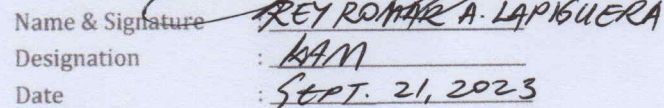 Name & Signature REY ROMAR A. LAPIGUERA
Designation : KAM
Date : SEPT. 21, 2023